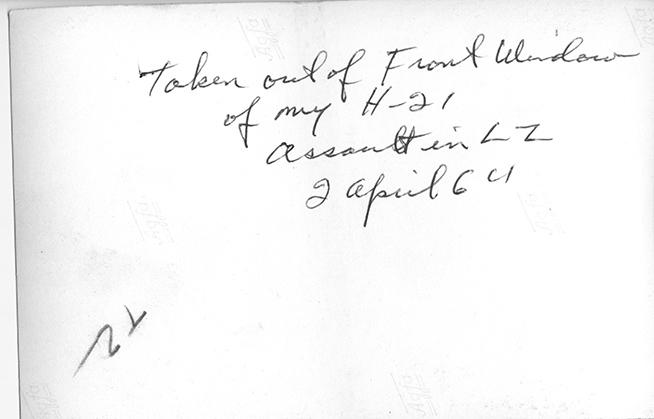 Taken out of Front Window
of my H-21
assault in LZ
2 April 64